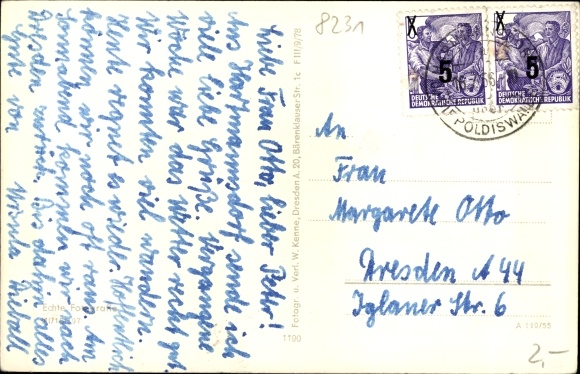 Liebe Frau Otto, lieber Peter!
Aus Hermannsdorf sende ich
viele liebe Grüße. Vergangene
Woche war das Wetter recht gut.
Wir konnten viel wandern.
Heute regnet es wieder. Hoffentlich
können wir noch oft raus. Am
Sonnabend kommen wir nach
Dresden zurück. Bis dahin alles
Gute von
Echte Fotografie
1190
Fotogr. u. Verl. W. Kenne, Dresden A. 20, Bärenklauser Str. 1c F III/9/78
8231
X
5
DEUTSCHE
DEMOKRATISCHE REPUBLIK
X
5
DEUTSCHE
DEMOKRATISCHE REPUBLIK
An
Frau
Margarete Otto
Dresden A 44
Iglauer Str. 6
A 119/55
2,-